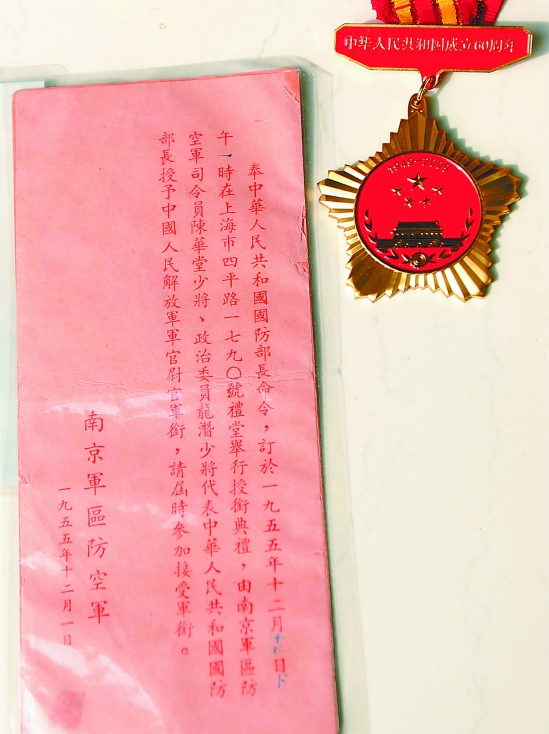 奉中華人民共和國國防部長命令，訂於一九五五年十二月日下
午一時在上海市四平路一七九〇號禮堂舉行授銜典禮，由南京軍區防
空軍司令員陳華堂少將、政治委員龍潛少將代表中華人民共和國國防
部長授予中國人民解放軍軍官尉官軍銜，請屆時參加接受軍銜。
南京軍區防空軍
一九五五年十二月一日
中华人民共和国成立60周年
1949-2009